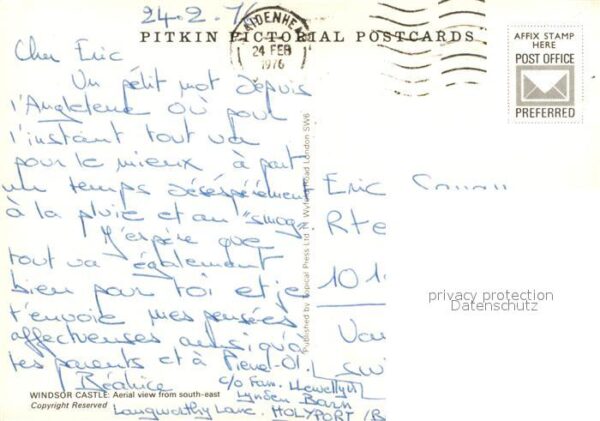 24.2.76
MAIDENHEAD
24 FEB
1976
PITKIN PICTORIAL POSTCARDS
AFFIX STAMP
HERE
POST OFFICE
PREFERRED
Cher Eric
Un petit mot depuis
l'Angleterre où pour
l'instant tout va
pour le mieux à part
un temps désespérément
à la pluie et au "smog".
J'espère que
tout va également
bien pour toi et je
t'envoie mes pensées
affectueuses ainsi qu'à
tes parents et à
Béatrice
c/o Fam. Llewellyn
Lynden Barn
Langworthy Lane. HOLYPORT /B
Eric
Rte
101
privacy protection
Datenschutz
Published by Tropical Press Ltd Wyfold Road London SW6
WINDSOR CASTLE: Aerial view from south-east
Copyright Reserved